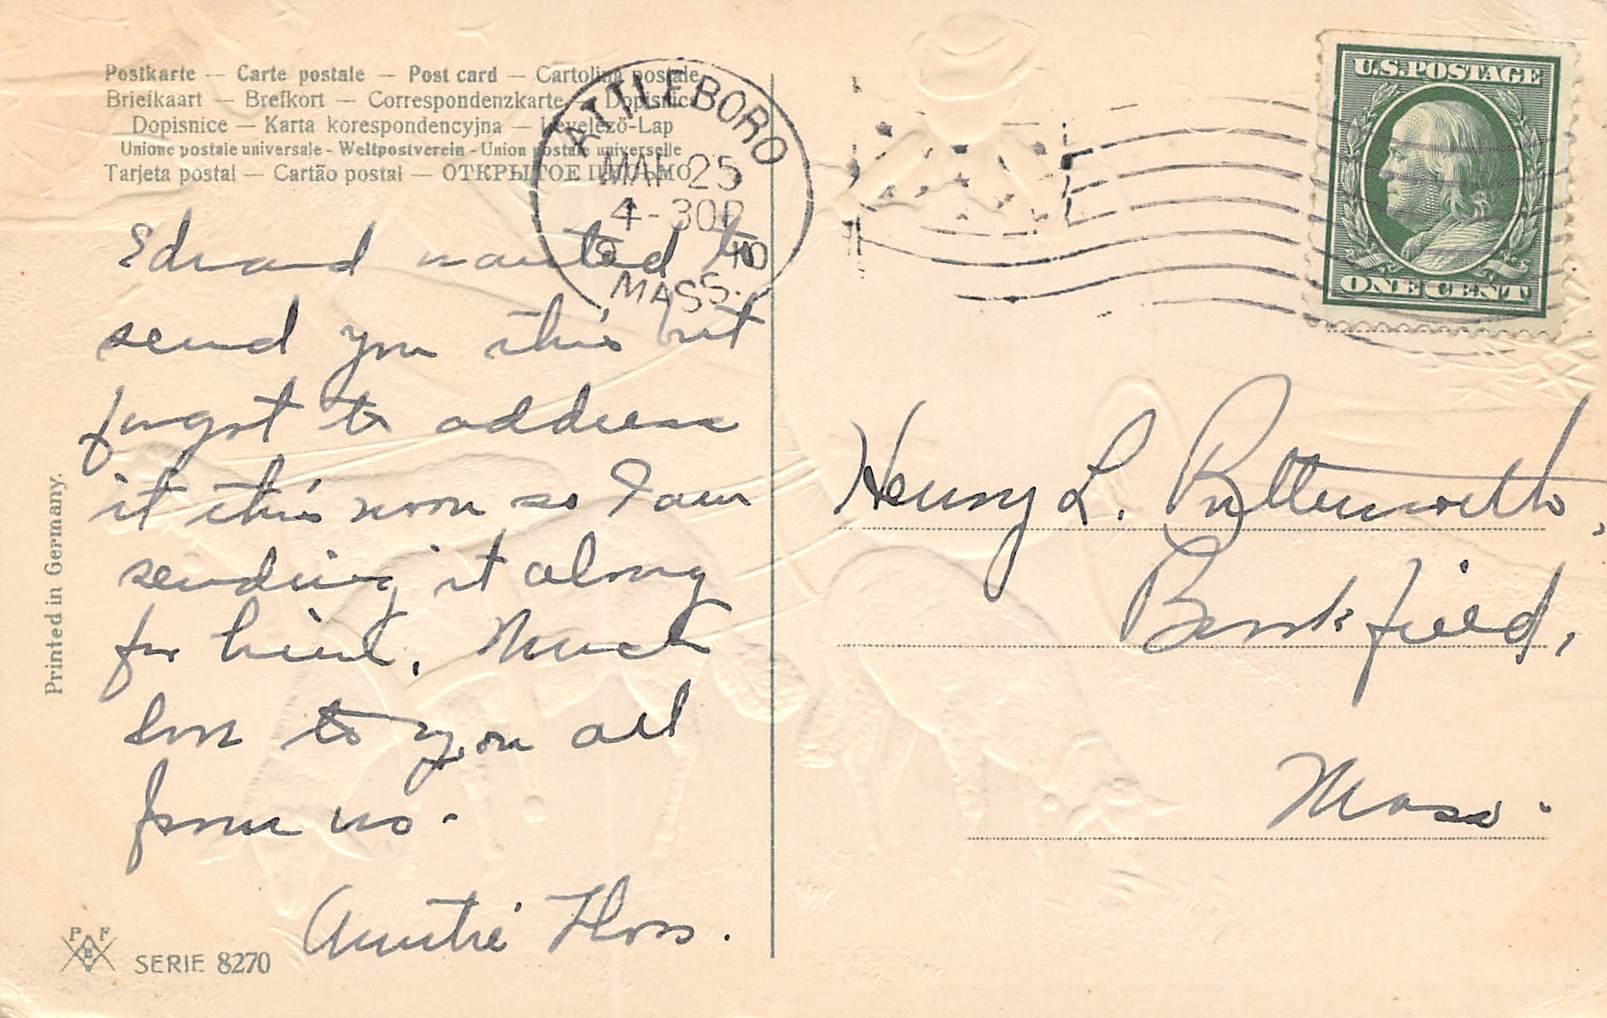 Postkarte — Carte postale — Post card — Cartolina postale
Briefkaart — Brefkort — Correspondenzkarte — Dopisnice
Dopisnice — Karta korespondencyjna — Levelező-Lap
Unione postale universale - Weltpostverein - Union postale universelle
Tarjeta postal — Cartão postal — ОТКРЫТОЕ ПИСЬМО
ATTLEBORO
MAR 25
4-30P
1910
MASS.
U.S. POSTAGE
ONE CENT
Edward wanted to
send you this but
forgot to address
it this noon so I am
sending it along
for him. Much
love to you all
from us.
Auntie Floss.
Henry L. Butterworth,
Brookfield,
Mass.
Printed in Germany.
P F
B
SERIE 8270